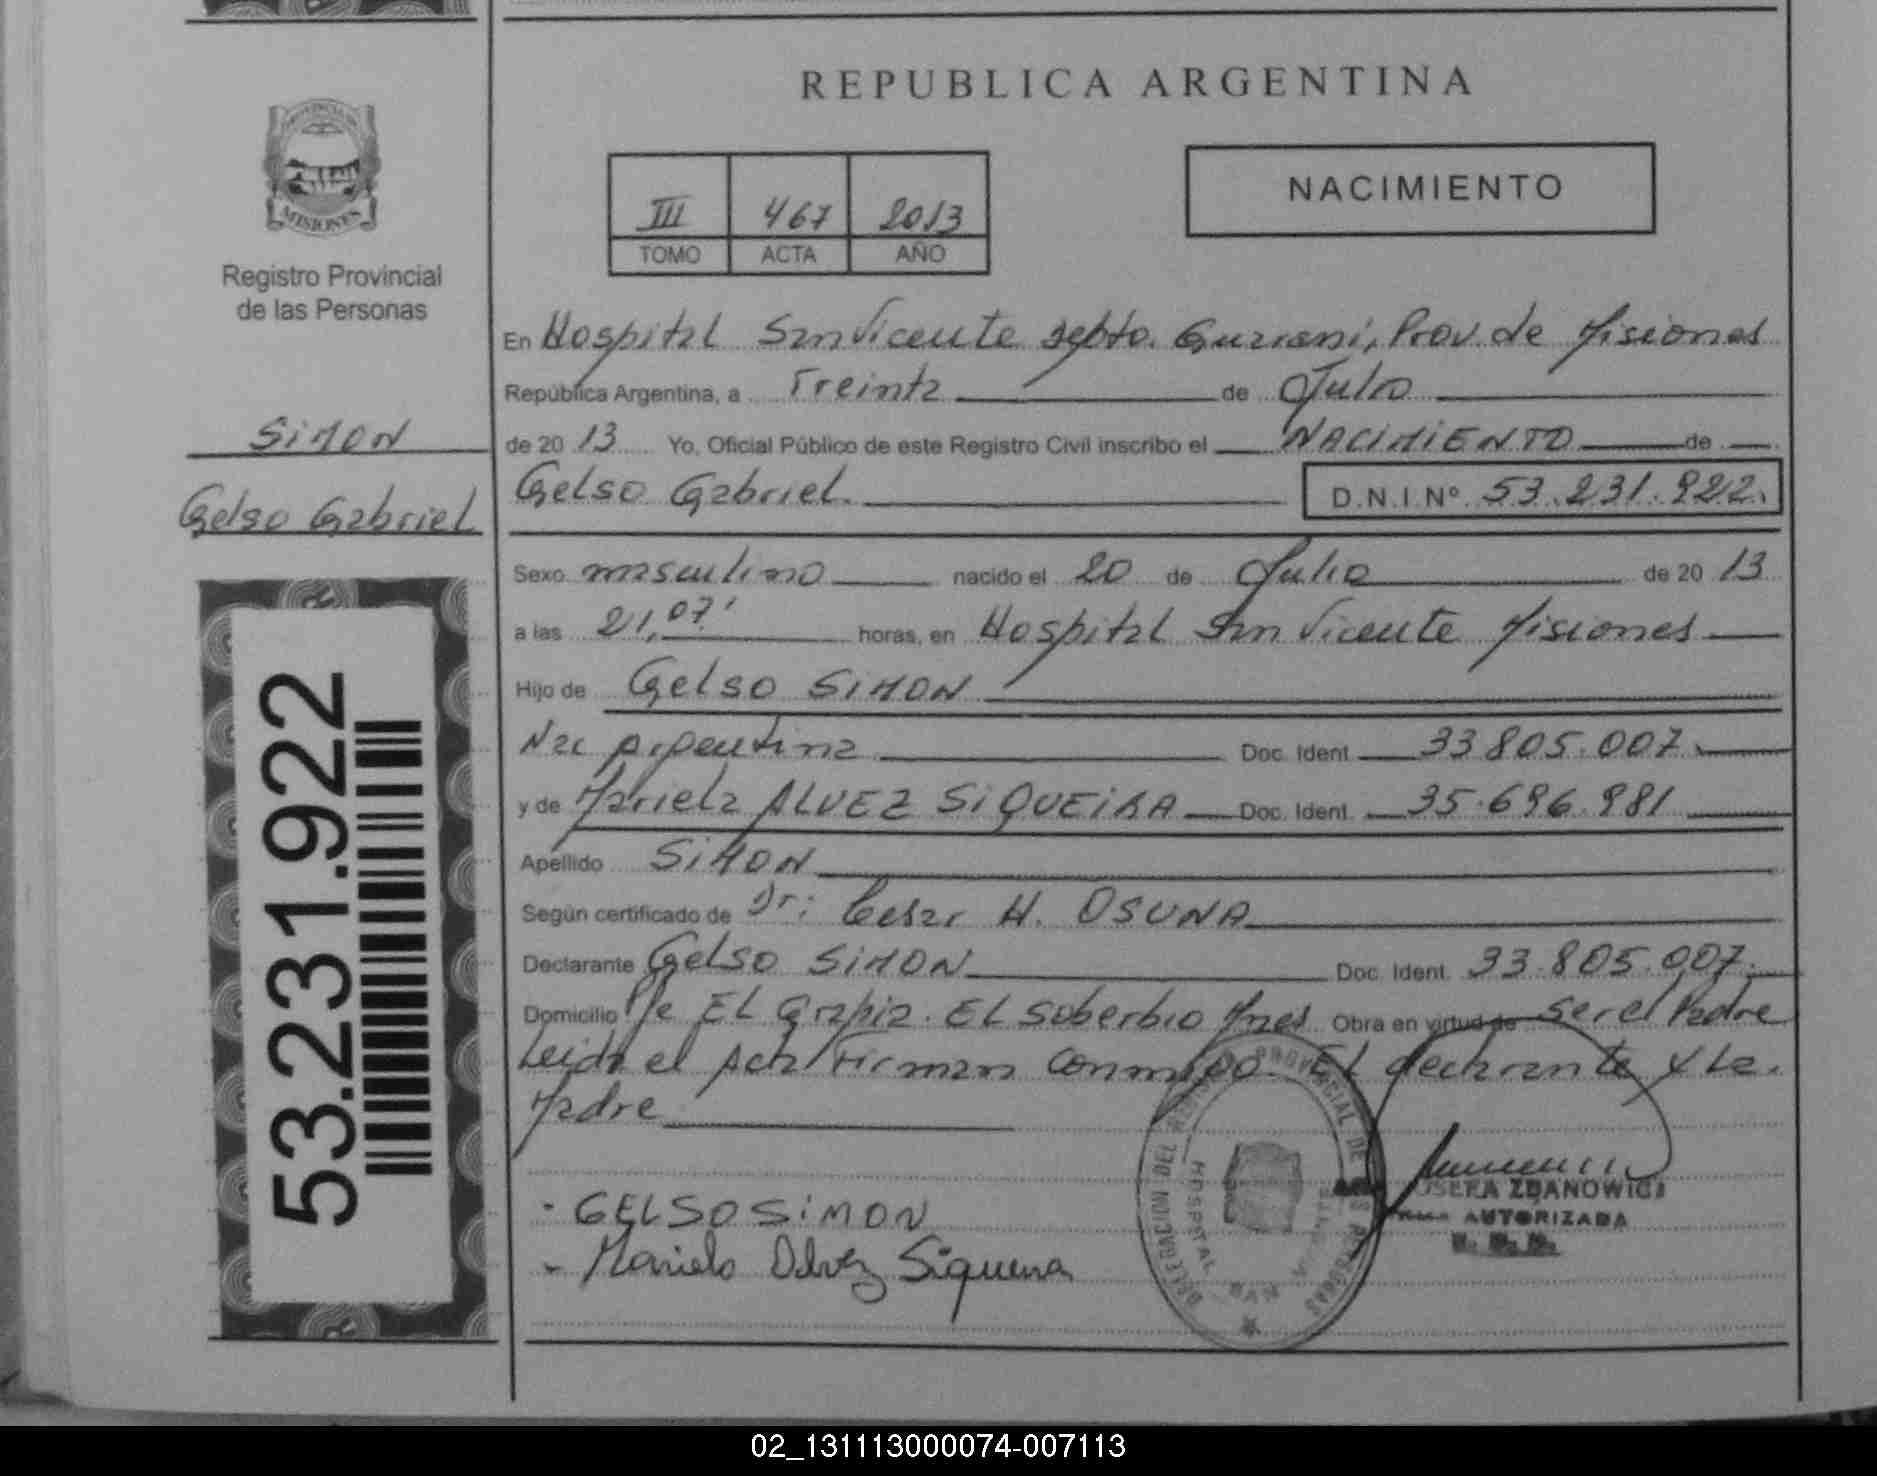 REPUBLICA ARGENTINA
PROVINCIA DE
MISIONES
Registro Provincial
de las Personas
NACIMIENTO
III 467 2013
TOMO ACTA AÑO
En Hospital San Vicente Depto. Guarani, Prov. de Misiones
República Argentina, a Treinta de Julio
SIMON
de 20 13 Yo, Oficial Público de este Registro Civil inscribo el NACIMIENTO de
Gelso Gabriel
Gelso Gabriel. D.N.I Nº 53.231.922.
Sexo masculino nacido el 20 de Julio de 20 13
a las 21,07' horas, en Hospital San Vicente Misiones
Hijo de Gelso SIMON
Nac Argentina Doc. Ident. 33805.007.
y de Mariela ALVEZ SIQUEIRA Doc. Ident. 35.696.981
Apellido SIMON
Según certificado de Dr: Cesar H. OSUNA
Declarante Gelso SIMON Doc. Ident. 33.805.007.
Domicilio EL Grapia. EL Soberbio Mnes Obra en virtud de Ser el Padre
Leida el Acta Firman Conmigo. El declarante y La.
Madre
53.231.922
- GELSO SIMON
- Mariela Alvez Siqueira
DELEGACION DEL REGISTRO PROVINCIAL DE LAS PERSONAS
HOSPITAL SAN VICENTE
ZDANOWICZ
AUTORIZADA
02_131113000074-007113